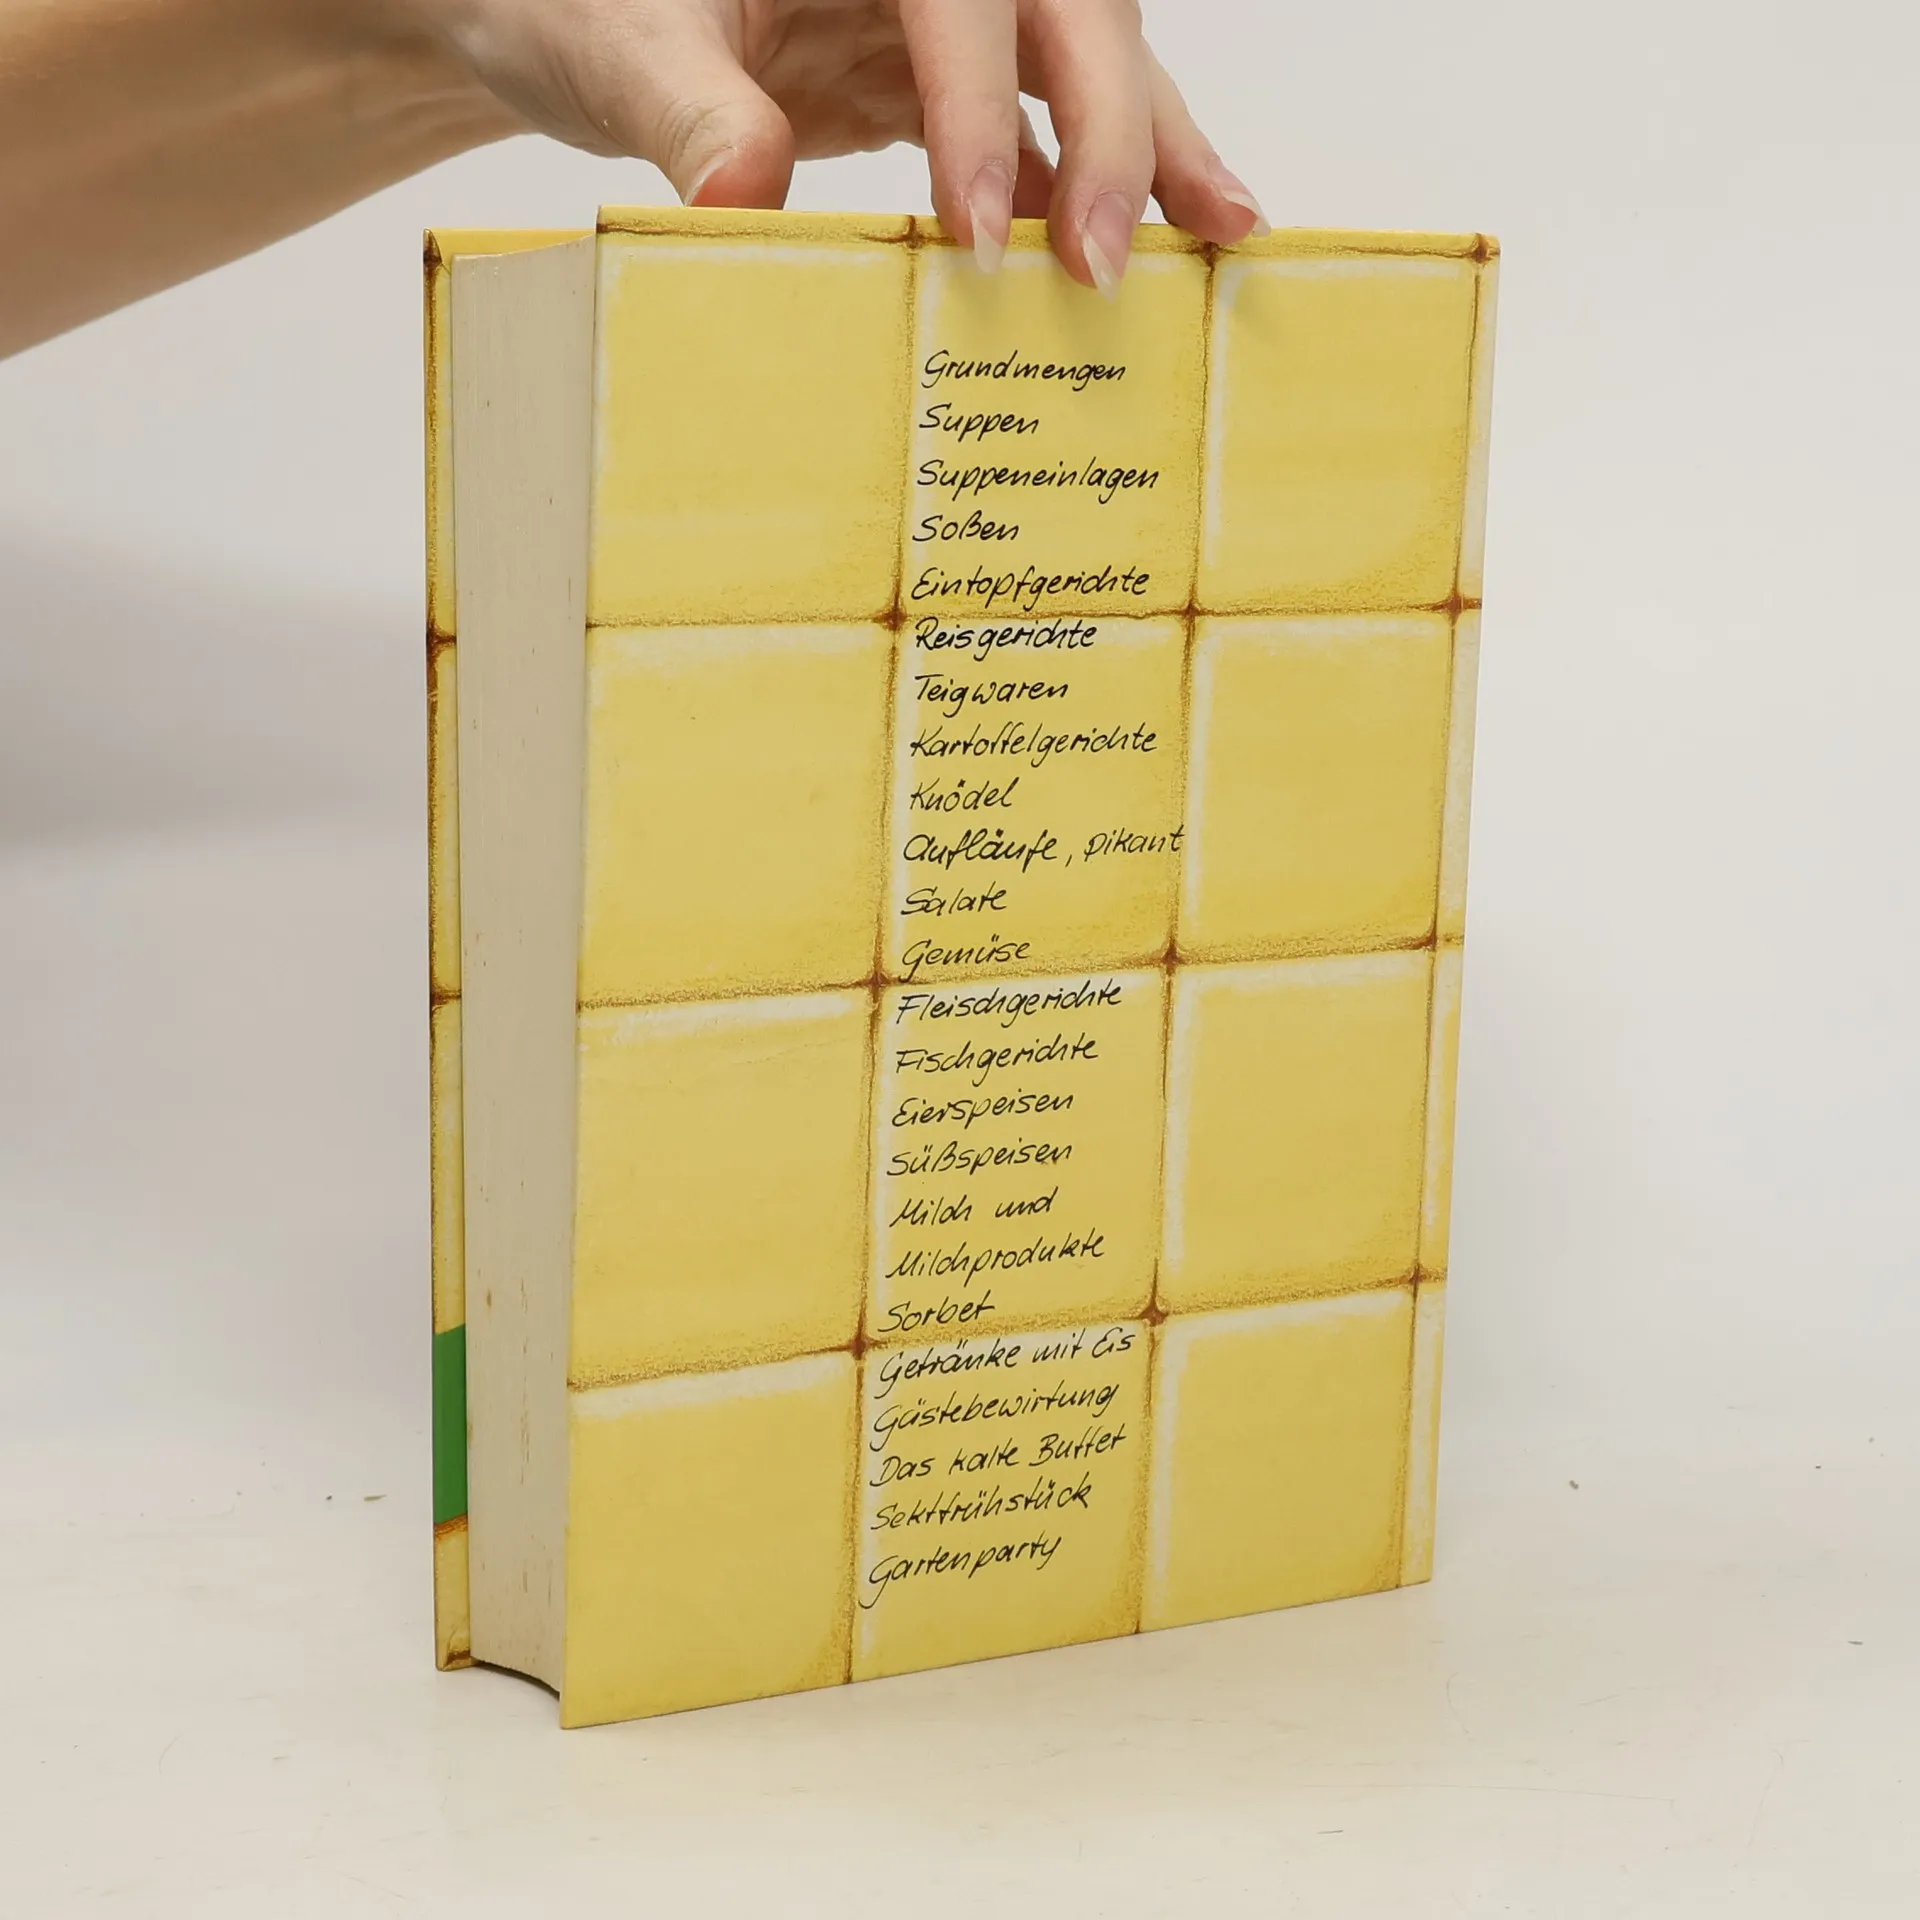 Grundmengen
Suppen
Suppeneinlagen
Soßen
Eintopfgerichte
Reisgerichte
Teigwaren
Kartoffelgerichte
Knödel
Aufläufe, pikant
Salate
Gemüse
Fleischgerichte
Fischgerichte
Eierspeisen
Süßspeisen
Milch und
Milchprodukte
Sorbet
Getränke mit Eis
Gästebewirtung
Das kalte Buffet
Sektfrühstück
Gartenparty